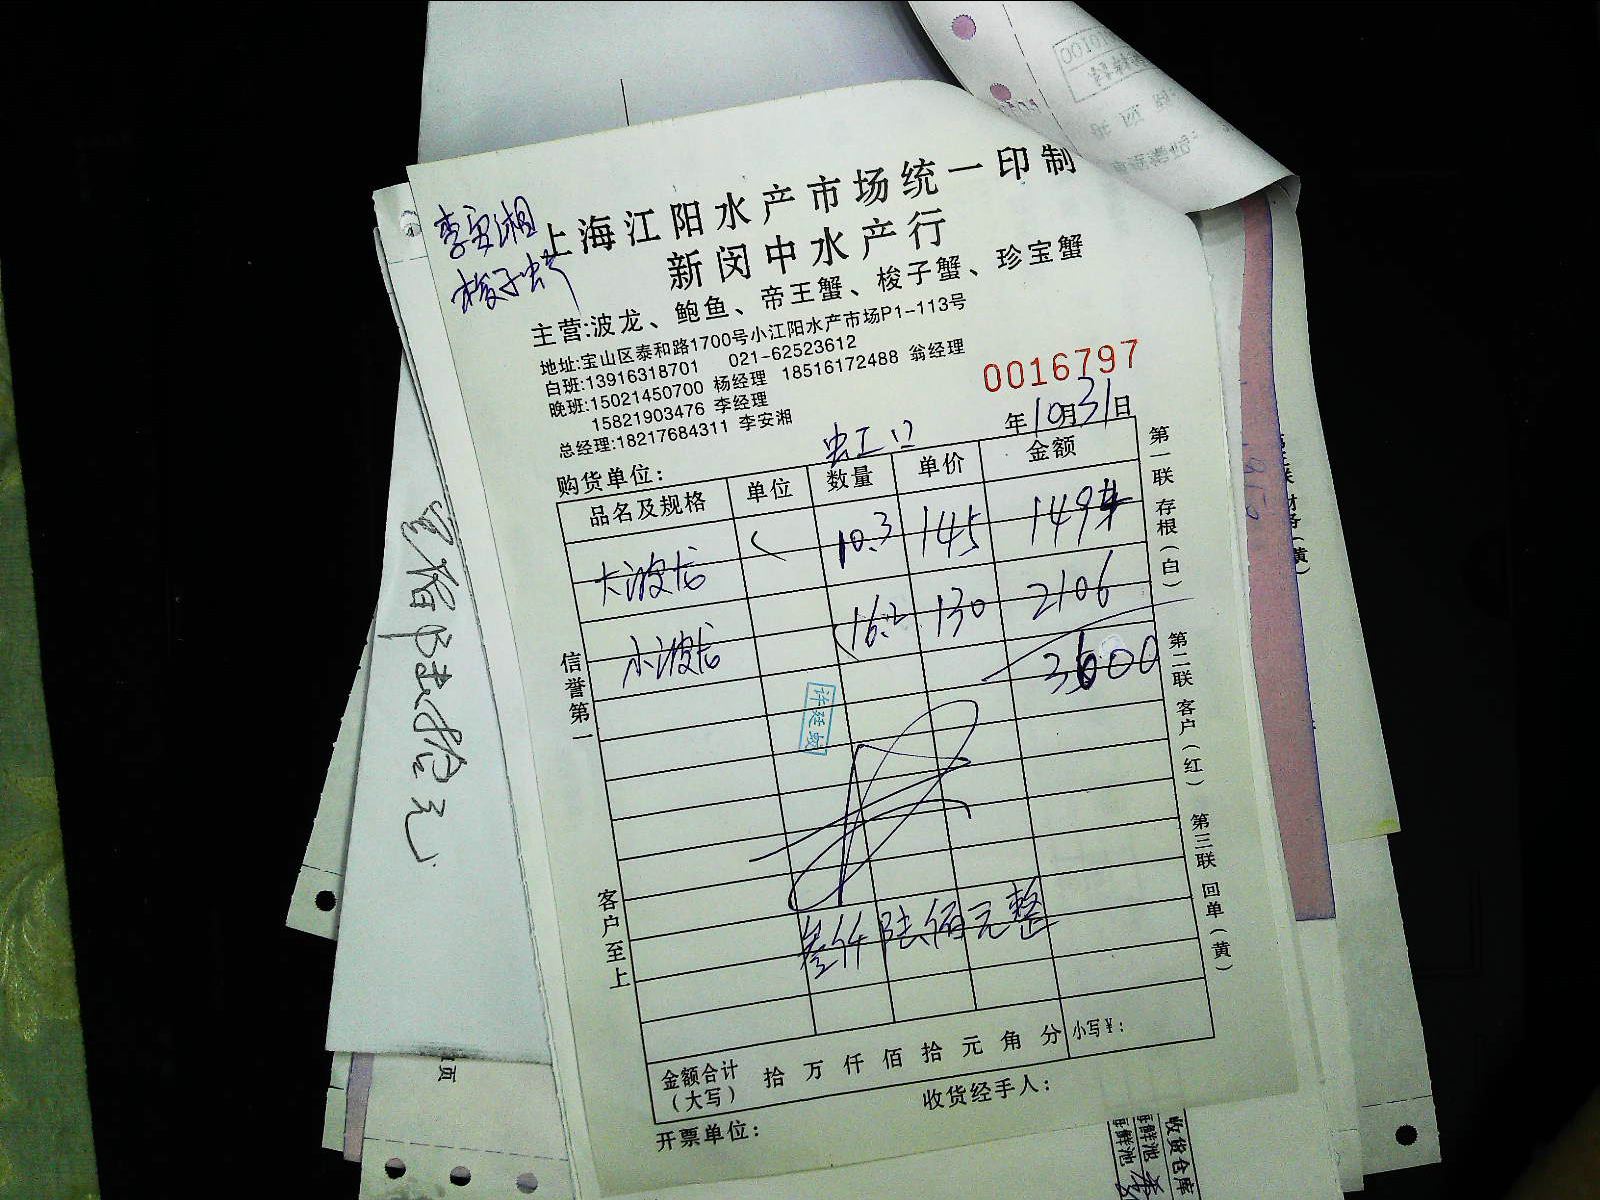 李安湘
梭子蟹
上海江阳水产市场统一印制
新闵中水产行
主营:波龙、鲍鱼、帝王蟹、梭子蟹、珍宝蟹
地址:宝山区泰和路1700号小江阳水产市场P1-113号
白班:13916318701 021-62523612
晚班:15021450700 杨经理 18516172488 翁经理
15821903476 李经理
总经理:18217684311 李安湘
0016797
年10月31日
购货单位: 虹口
品名及规格 单位 数量 单价 金额
大波龙 10.3 145 1494
小波龙 16.2 130 2106
3600
许廷
叁仟陆佰元整
金额合计 拾万仟佰拾元角分 小写¥:
(大写)
收货经手人:
开票单位:
信誉第一
客户至上
第一联 存根(白)
第二联 客户(红)
第三联 回单(黄)
收货仓库